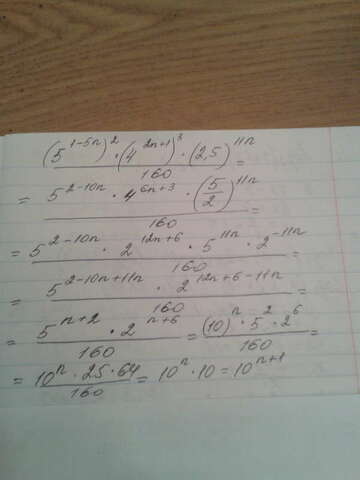 (5^{1-5n})^2 · (4^{2n+1})^3 · (2,5)^{11n} / 160 =
= 5^{2-10n} · 4^{6n+3} · (5/2)^{11n} / 160 =
= 5^{2-10n} · 2^{12n+6} · 5^{11n} · 2^{-11n} / 160 =
= 5^{2-10n+11n} · 2^{12n+6-11n} / 160 =
= 5^{n+2} · 2^{n+6} / 160 = (10)^n · 5^2 · 2^6 / 160 =
= 10^n · 25 · 64 / 160 = 10^n · 10 = 10^{n+1}